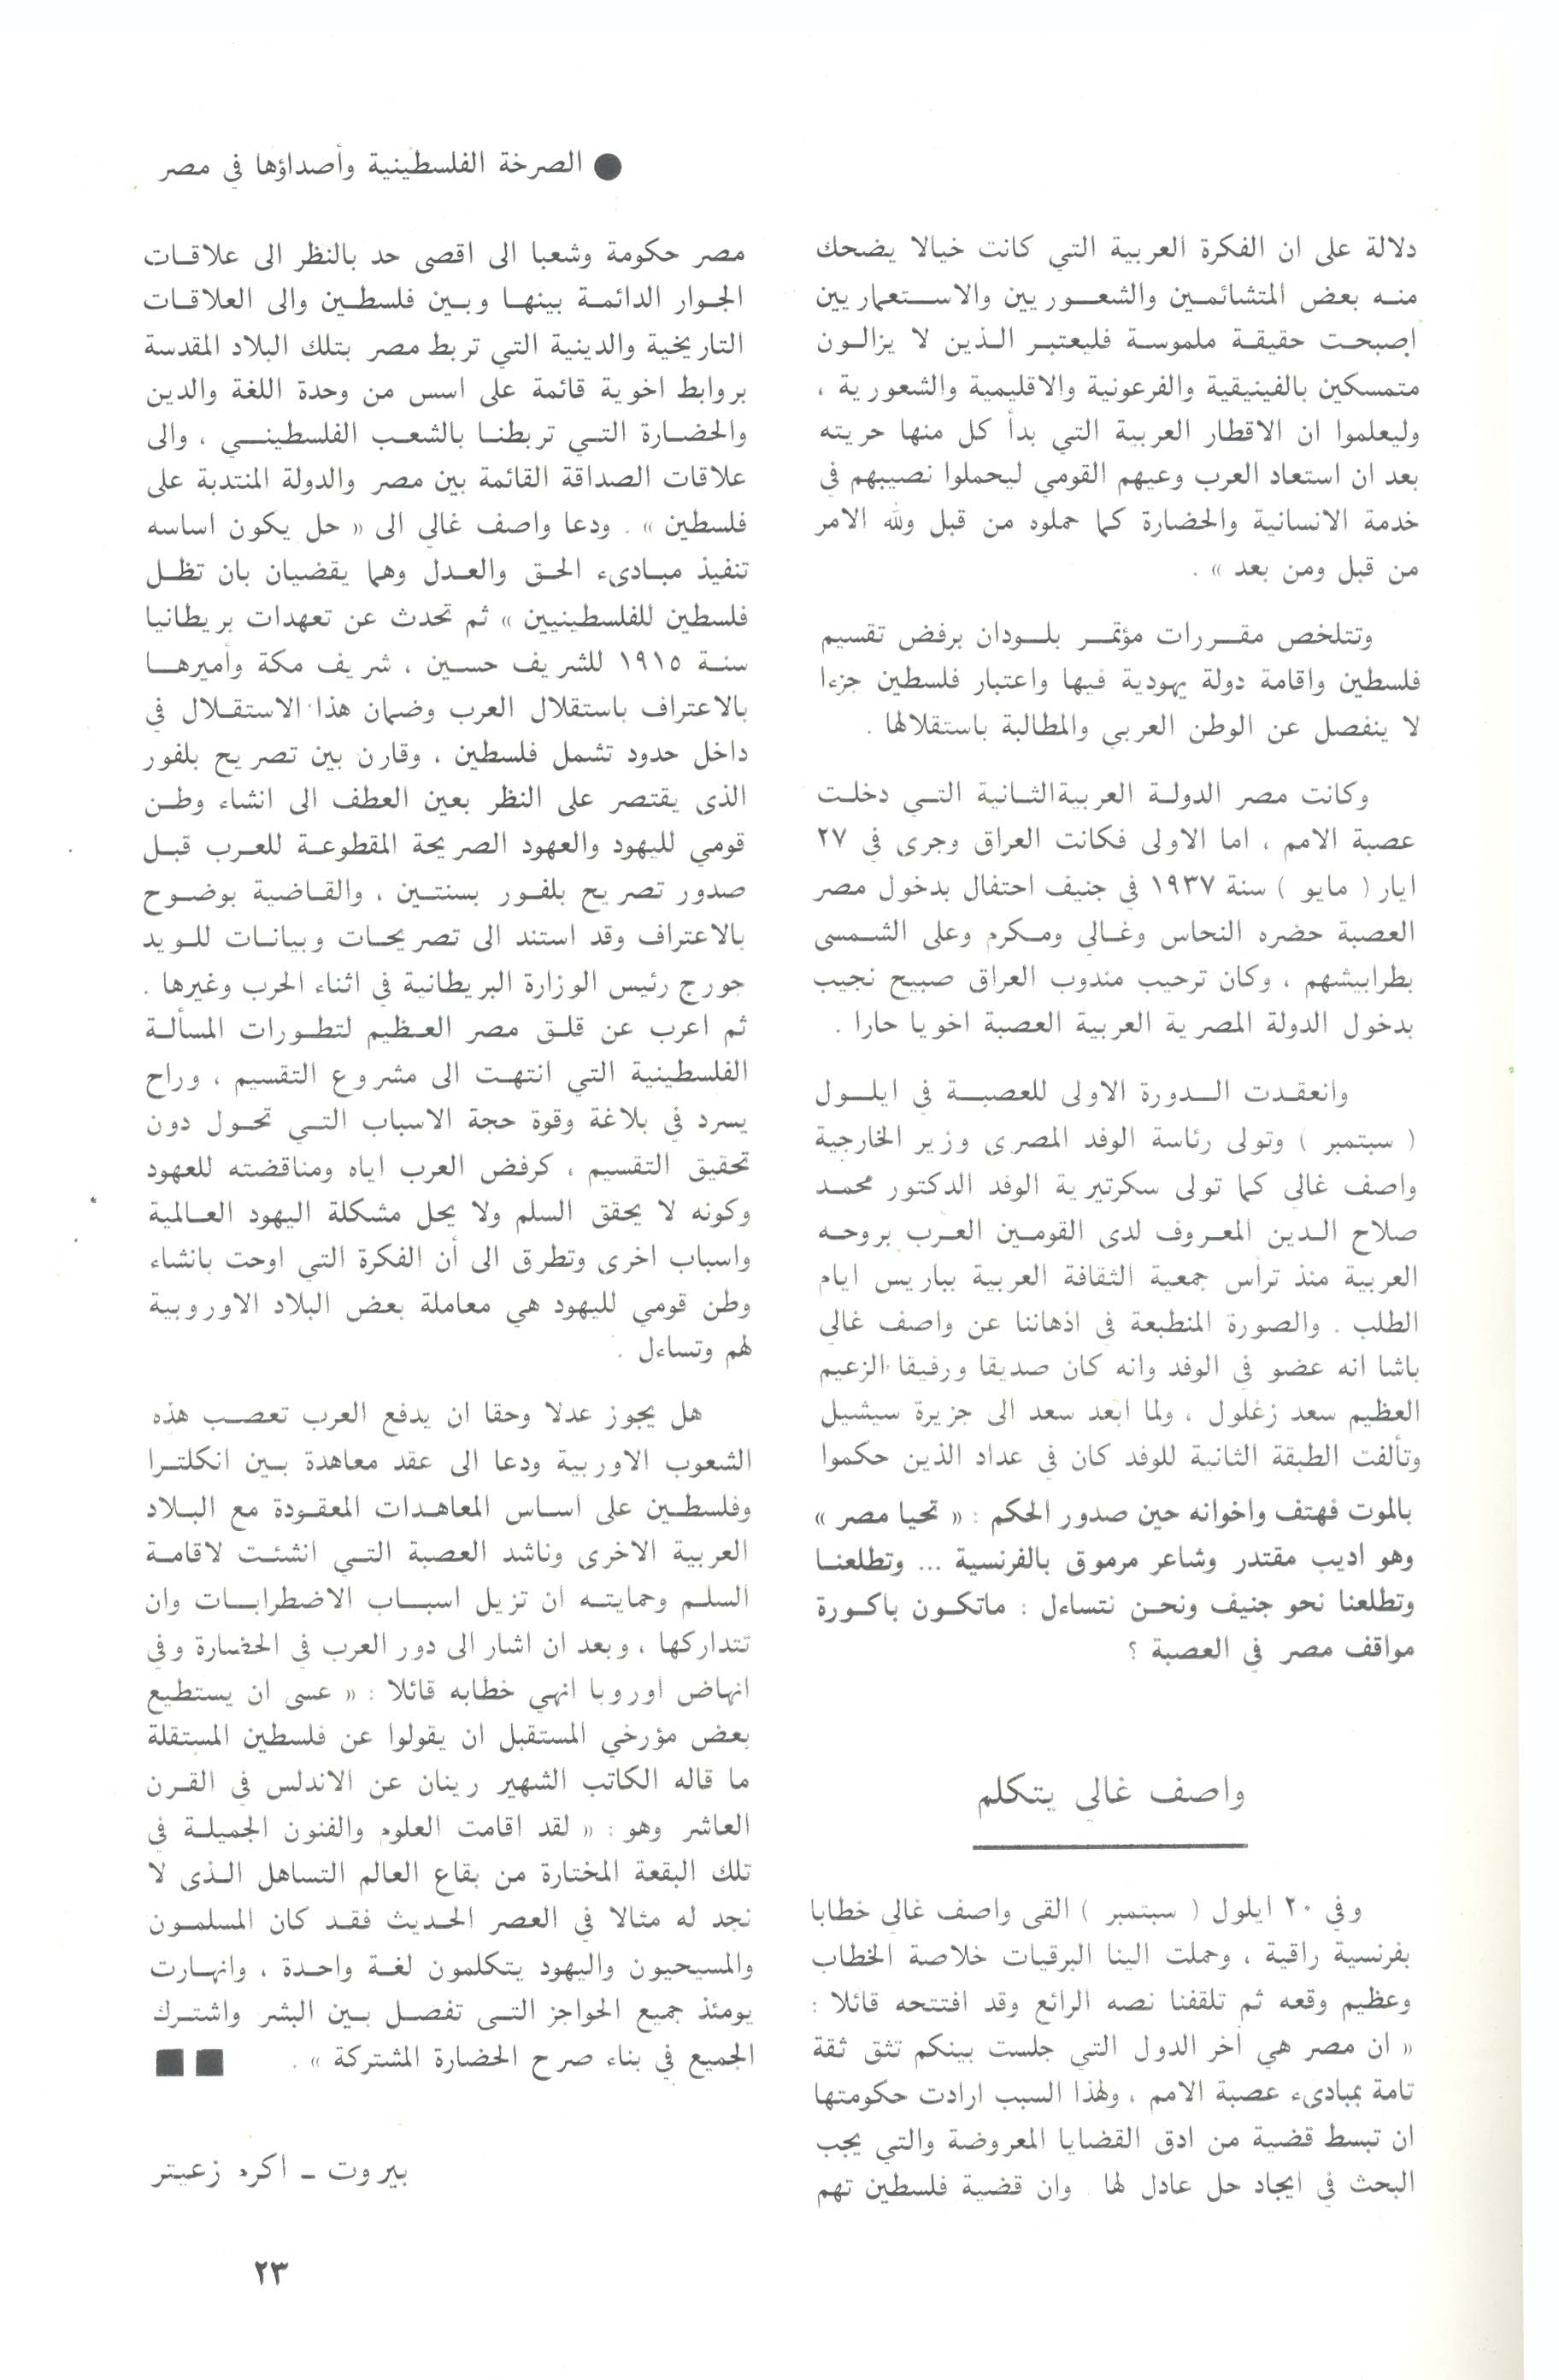 ● الصرخة الفلسطينية وأصداؤها في مصر
دلالة على ان الفكرة العربية التي كانت خيالا يضحك
منه بعض المتشائمين والشعوريين والاستعماريين
اصبحت حقيقة ملموسة فليعتبر الذين لا يزالون
متمسكين بالفينيقية والفرعونية والاقليمية والشعورية ،
وليعلموا ان الاقطار العربية التي بدأ كل منها حريته
بعد ان استعاد العرب وعيهم القومي ليحملوا نصيبهم في
خدمة الانسانية والحضارة كما حملوه من قبل ولله الامر
من قبل ومن بعد » .
وتتلخص مقررات مؤتمر بلودان برفض تقسيم
فلسطين واقامة دولة يهودية فيها واعتبار فلسطين جزءا
لا ينفصل عن الوطن العربي والمطالبة باستقلالها .
وكانت مصر الدولة العربيةالثانية التي دخلت
عصبة الامم ، اما الاولى فكانت العراق وجرى في ٢٧
ايار ( مايو ) سنة ١٩٣٧ في جنيف احتفال بدخول مصر
العصبة حضره النحاس وغالي ومكرم وعلى الشمسى
بطرابيشهم ، وكان ترحيب مندوب العراق صبيح نجيب
بدخول الدولة المصرية العربية العصبة اخويا حارا .
وانعقدت الدورة الاولى للعصبة في ايلول
( سبتمبر ) وتولى رئاسة الوفد المصرى وزير الخارجية
واصف غالي كما تولى سكرتيرية الوفد الدكتور محمد
صلاح الدين المعروف لدى القومين العرب بروحه
العربية منذ ترأس جمعية الثقافة العربية بباريس ايام
الطلب . والصورة المنطبعة في اذهاننا عن واصف غالى
باشا انه عضو في الوفد وانه كان صديقا ورفيقا الزعيم
العظيم سعد زغلول ، ولما ابعد سعد الى جزيرة سيشيل
وتألفت الطبقة الثانية للوفد كان في عداد الذين حكموا
بالموت فهتف واخوانه حين صدور الحكم : « تحيا مصر »
وهو اديب مقتدر وشاعر مرموق بالفرنسية ... وتطلعنا
وتطلعنا نحو جنيف ونحن نتساءل : ماتكون باكورة
مواقف مصر في العصبة ؟
واصف غالي يتكلم
وفي ٢٠ ايلول ( سبتمبر ) القى واصف غالى خطابا
بفرنسية راقية ، وحملت الينا البرقيات خلاصة الخطاب
وعظيم وقعه ثم تلقفنا نصه الرائع وقد افتتحه قائلا :
« ان مصر هي أخر الدول التي جلست بينكم تثق ثقة
تامة بمبادىء عصبة الامم ، ولهذا السبب ارادت حكومتها
ان تبسط قضية من ادق القضايا المعروضة والتي يجب
البحث في ايجاد حل عادل لها وان قضية فلسطين تهم
مصر حكومة وشعبا الى اقصى حد بالنظر الى علاقات
الجوار الدائمة بينها وبين فلسطين والى العلاقات
التاريخية والدينية التي تربط مصر بتلك البلاد المقدسة
بروابط اخوية قائمة على اسس من وحدة اللغة والدين
والحضارة التي تربطنا بالشعب الفلسطيني ، والى
علاقات الصداقة القائمة بين مصر والدولة المنتدبة على
فلسطين » . ودعا واصف غالي الى « حل يكون اساسه
تنفيذ مبادىء الحق والعدل وهما يقضيان بان تظل
فلسطين للفلسطينيين » ثم تحدث عن تعهدات بريطانيا
سنة ١٩١٥ للشريف حسين ، شريف مكة وأميرها
بالاعتراف باستقلال العرب وضمان هذا الاستقلال في
داخل حدود تشمل فلسطين ، وقارن بين تصريح بلفور
الذى يقتصر على النظر بعين العطف الى انشاء وطن
قومي لليهود والعهود الصريحة المقطوعة للعرب قبل
صدور تصريح بلفور بسنتين ، والقاضية بوضوح
بالاعتراف وقد استند الى تصريحات وبيانات للويد
جورج رئيس الوزارة البريطانية في اثناء الحرب وغيرها .
ثم اعرب عن قلق مصر العظيم لتطورات المسألة
الفلسطينية التي انتهت الى مشروع التقسيم ، وراح
يسرد في بلاغة وقوة حجة الاسباب التي تحول دون
تحقيق التقسيم ، كرفض العرب اياه ومناقضته للعهود
وكونه لا يحقق السلم ولا يحل مشكلة اليهود العالمية
واسباب اخرى وتطرق الى أن الفكرة التي اوحت بانشاء
وطن قومي لليهود هي معاملة بعض البلاد الاوروبية
لهم وتساءل .
هل يجوز عدلا وحقا ان يدفع العرب تعصب هذه
الشعوب الاوربية ودعا الى عقد معاهدة بين انكلترا
وفلسطين على اساس المعاهدات المعقودة مع البلاد
العربية الاخرى وناشد العصبة التي انشئت لاقامة
السلم وحمايته ان تزيل اسباب الاضطرابات وان
تتداركها ، وبعد ان اشار الى دور العرب في الحضارة وفي
انهاض اوروبا انهي خطابه قائلا : « عسى ان يستطيع
بعض مؤرخي المستقبل ان يقولوا عن فلسطين المستقلة
ما قاله الكاتب الشهير رينان عن الاندلس في القرن
العاشر وهو : « لقد اقامت العلوم والفنون الجميلة في
تلك البقعة المختارة من بقاع العالم التساهل الذى لا
نجد له مثالا في العصر الحديث فقد كان المسلمون
والمسيحيون واليهود يتكلمون لغة واحدة ، وانهارت
يومئذ جميع الحواجز التى تفصل بين البشر واشترك
الجميع في بناء صرح الحضارة المشتركة » . ■ ■
بيروت ـ اكرم زعيتر
٢٣